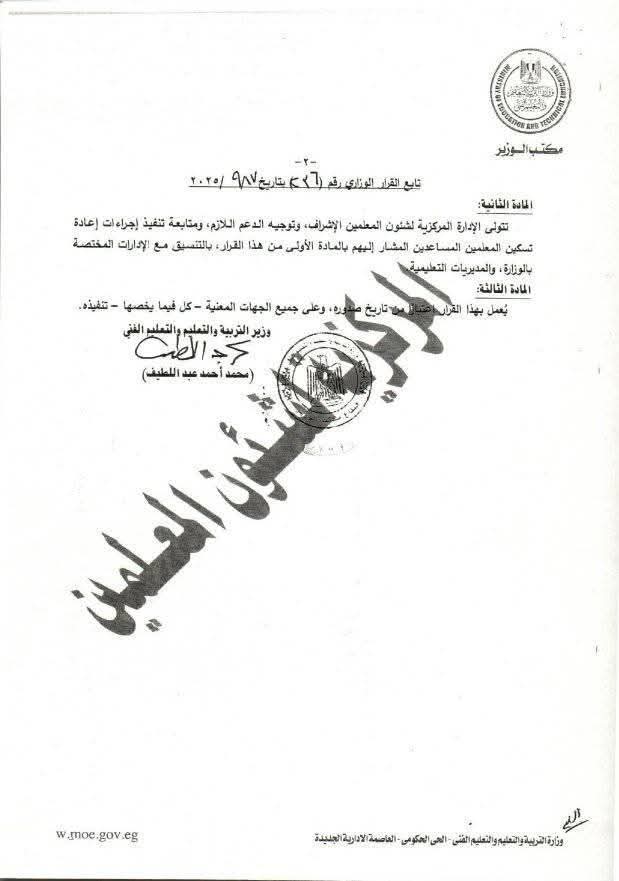 MINISTRY OF EDUCATION AND TECHNICAL EDUCATION
مكتب الوزير
-٢-
تابع القرار الوزاري رقم (٢٣٦) بتاريخ ٩/٨/٢٠٢٥
المادة الثانية:
تتولى الإدارة المركزية لشئون المعلمين الإشراف، وتوجيه الدعم اللازم، ومتابعة تنفيذ إجراءات إعادة
تسكين المعلمين المساعدين المشار إليهم بالمادة الأولى من هذا القرار، بالتنسيق مع الإدارات المختصة
بالوزارة، والمديريات التعليمية.
المادة الثالثة:
يُعمل بهذا القرار اعتبارًا من تاريخ صدوره، وعلى جميع الجهات المعنية – كل فيما يخصها – تنفيذه.
وزير التربية والتعليم والتعليم الفني
(محمد أحمد عبد اللطيف)
المركزية لشئون المعلمين
وزارة التربية والتعليم والتعليم الفنى - الحى الحكومى - العاصمة الادارية الجديدة
w.moe.gov.eg